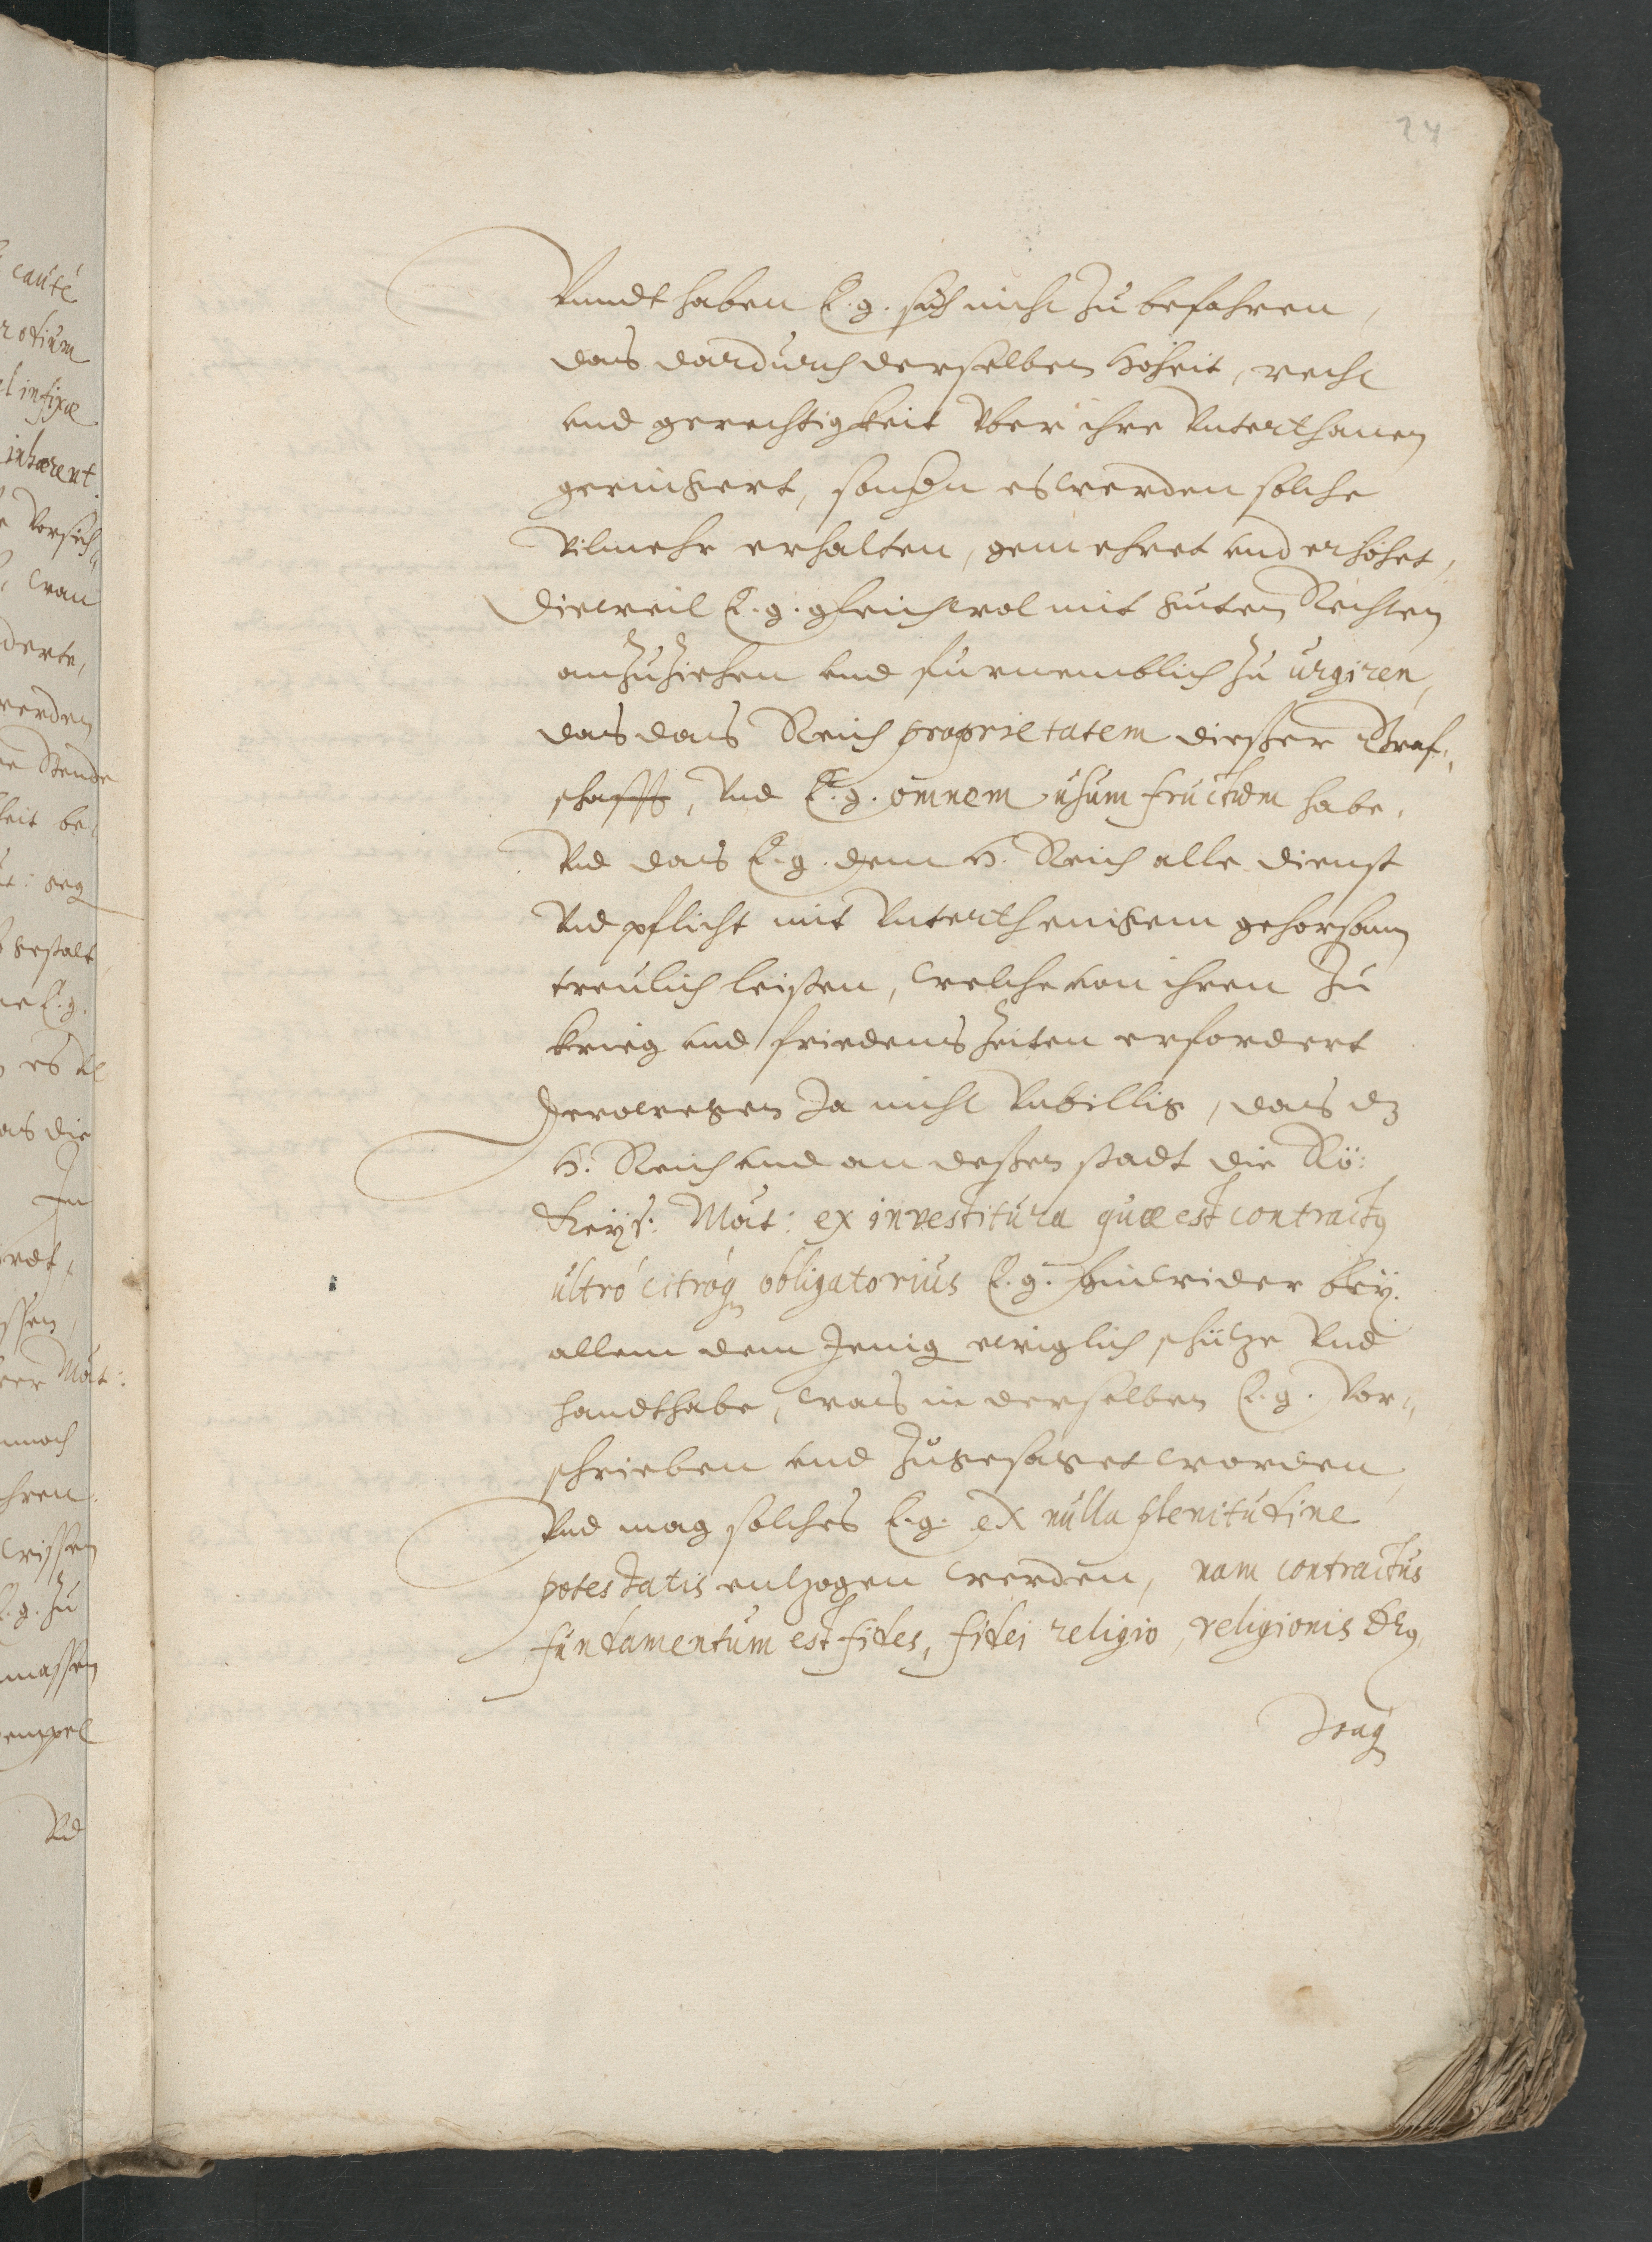 24
Vnndt haben E. g. sich nicht zu befahren,
das dardurch derselben Hoheit, recht
vnd gerechtigkeit vber ihre Vnterthanen
geringert, sondern es werden solche
vilmehr erhalten, gemehret vnd erhöhet,
Dieweil E. g. gleichwol mit guten Rechten
anzuziehen vnd furnemblich zu urgiren,
das das Reich proprietatem dießer Graf„
schafft, vnd E. g. omnem usum fructum habe,
Vnd das E. g. dem H. Reich alle dienst
Vnd pflicht mit Vnterthenigem gehorsam
treulich leisten, welche von ihren zu
krieg vnd friedens zeiten erfordert
Derowegen Ja nicht Vnbillig, das dz
H. Reich vnd an deßen stadt die Rö:
Keÿs: Mat: ex investitura quae est contractus
ultrò citròq obligatorius E. g. hinwider beÿ
allem dem Jenig ewiglich schütze Vnd
handthabe, was in derselben E. g. Vor„
schrieben vnd zugesaget worden,
Vnd mag solches E. g. ex nulla plenitudine
potestatis entzogen werden, nam contractus
fundamentum est fides, fidei religio, religionis
cauté
infixae
inhaerent.
Vorsich„
wan
werden
gestalt
E. g.
das die
Mat:
wissen
E. g. zu
massen
Vnd